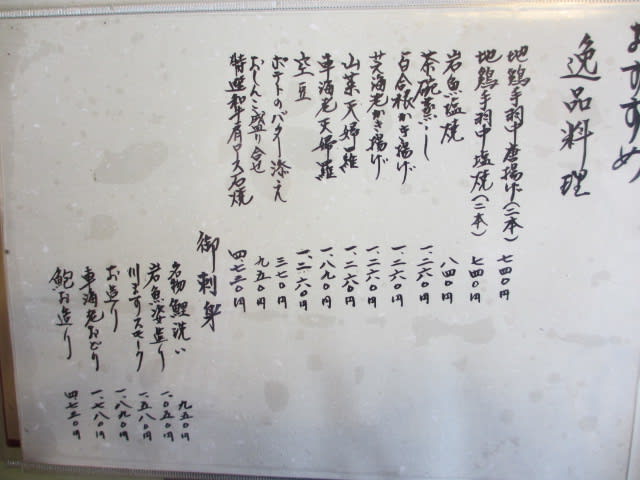 おすすめ
逸品料理
地鶏手羽中唐揚げ(二本) 七四〇円
地鶏手羽中塩焼(二本) 七四〇円
岩魚塩焼 八四〇円
茶碗蒸し 一、二六〇円
百合根かき揚げ 一、二六〇円
芝海老かき揚げ 一、二六〇円
山菜天婦羅 一、二六〇円
車海老天婦羅 一、八九〇円
空豆 一、二六〇円
ポテトのバター添え 三七〇円
おしんこ盛り合せ 九五〇円
特選和牛肉ロース石焼 四、七三〇円
御刺身
名物鯉洗い 九五〇円
岩魚姿造り 一、〇五〇円
川ますスモーク 一、五八〇円
お造り 一、八九〇円
車海老おどり 一、七八〇円
鮑お造り 四、七三〇円